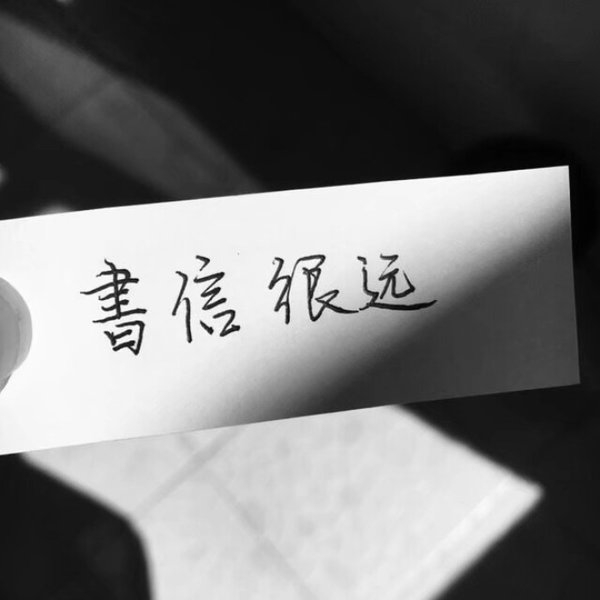 書信很远